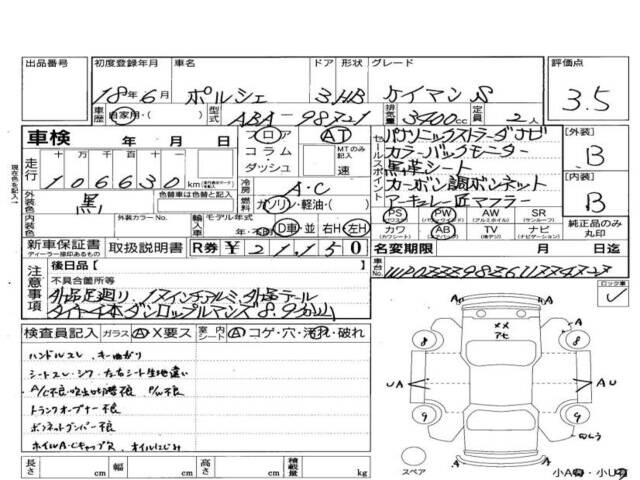 出品番号 初度登録年月 車名 ドア 形状 グレード 評価点
18年6月 ポルシェ 3 HB ケイマンS 3.5
車歴 自家用・( ) 型式 ABA-98721 排気量 3400cc 定員 2人
車検 年 月 日 フロア AT セールスポイント パナソニックストラーダナビ 【外装】
コラム・ MTのみ記入 カラーバックモニター B
走行 十万 万 千 百 十 一 ダッシュ 速 黒革シート
106630km 冷房 A・C カーボン調ボンネット 【内装】
外装色 黒 色替車は色替と記入 燃料 ガソリン・軽油・( ) アーキュレー匠マフラー B
現在色を記入
内装色 外装カラーNo. 輸入車 モデル年式 PS (パワステ) PW (パワーウィンドウ) AW (アルミホイル) SR (サンルーフ)
年・ D車・並 右H・左H カワ (カワシート) AB (エアバック) TV (地デジ) ナビ (ナビゲーション) 純正品のみ丸印
新車保証書 取扱説明書 R券 ¥21,150 名変期限 月 日迄
ディーラー捺印あるもの
注意事項 後日品【 】 車台No.
不具合箇所等 ロック車
外品足廻り、17インチアルミ、外品テール
タイヤ4本ダンロップ
検査員記入 ガラス A・X要ス 室内 シート A コゲ・穴・汚れ・破れ
ハンドルスレ、キー曲がり
シートスレ・シワ 左右シート生地違い
A/C不良・吹出口切替不良 P/W不良
トランクオープナー不良
ボンネットダンパー不良
ホイルA・Cキャップ欠 オイルにじみ
A
XX
8 8
UA AU
9 9
A
スペア 小A・小U有
長さ cm 幅 cm 高さ cm 積載量 kg